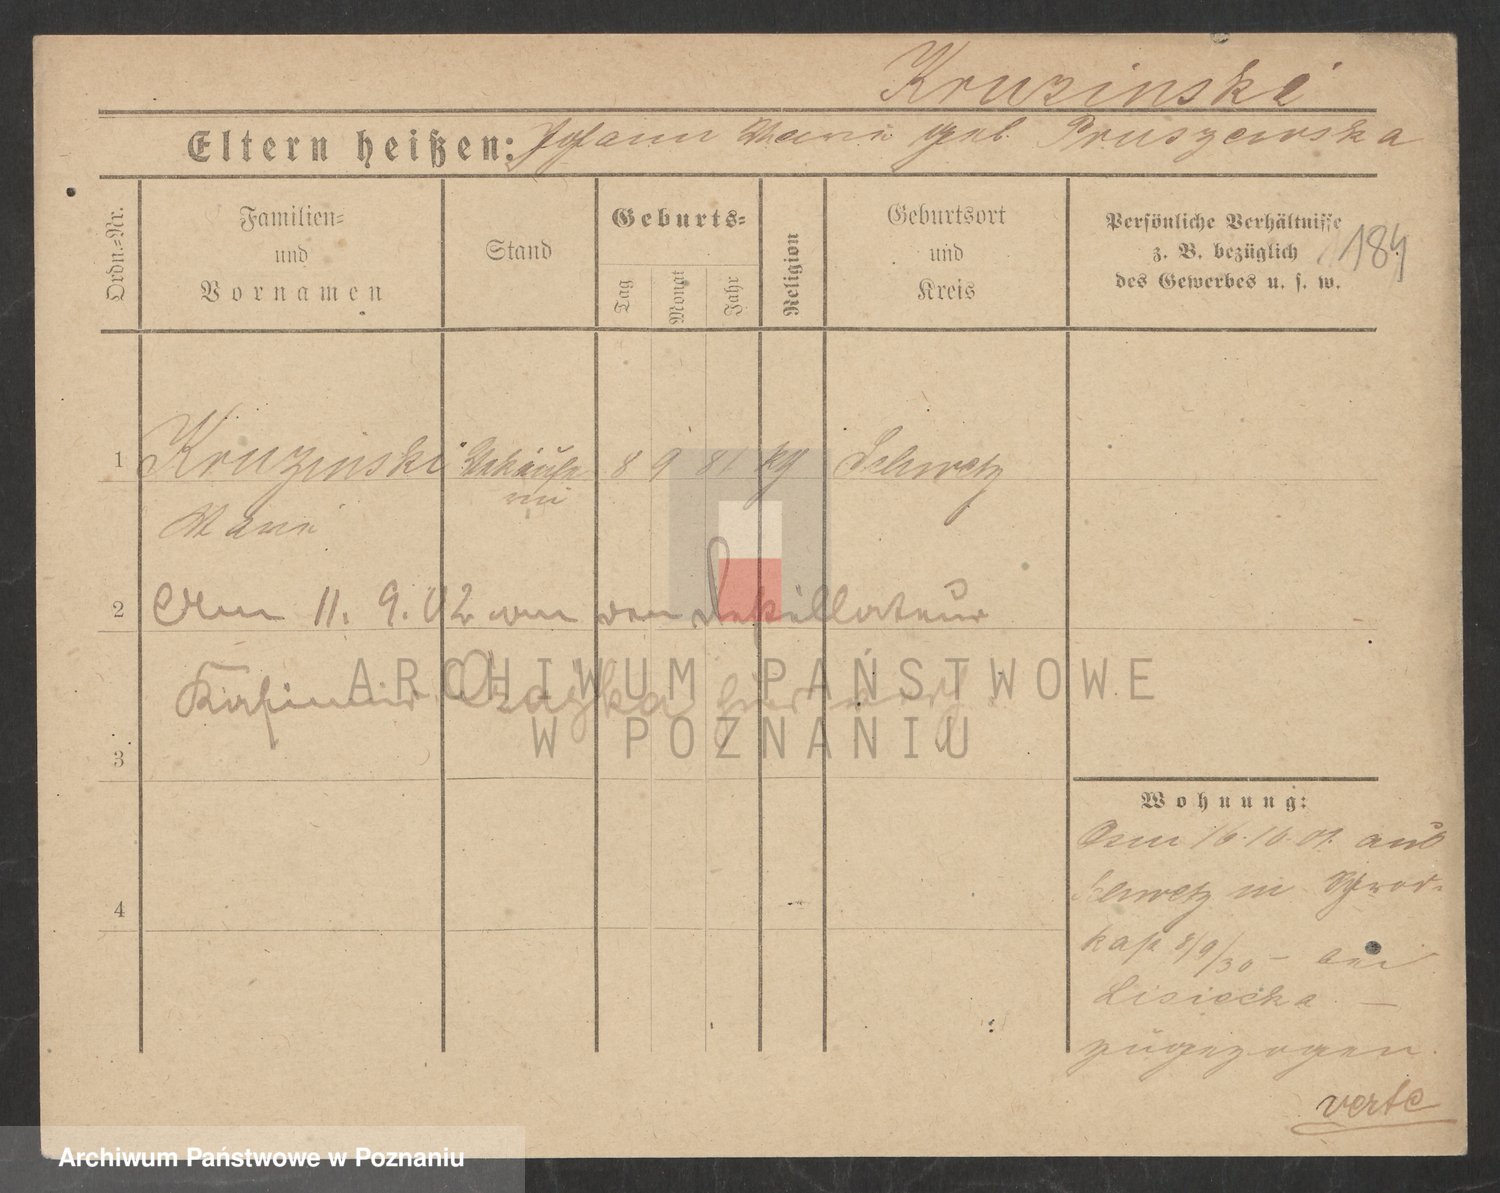 Kruzinski
Eltern heißen: Johann Marie geb. Pruszewska
Ordn.=Nr.
Familien=
und
Vornamen
Stand
Geburts=
Tag
Monat
Jahr
Religion
Geburtsort
und
Kreis
Persönliche Verhältnisse
z. B. bezüglich
des Gewerbes u. s. w.
184
1 Kruzinski Verkäufe 8 9 81 kg Schwetz
rin
Marie
2 Am 11. 9. 02 an den Destillateur
Kasimir hier verh.
3
4
Wohnung:
16.10.01. aus
Schwetz in
8/9/30 – bei
Lisiecka –
zugezogen.
verte
ARCHIWUM PAŃSTWOWE
W POZNANIU
Archiwum Państwowe w Poznaniu